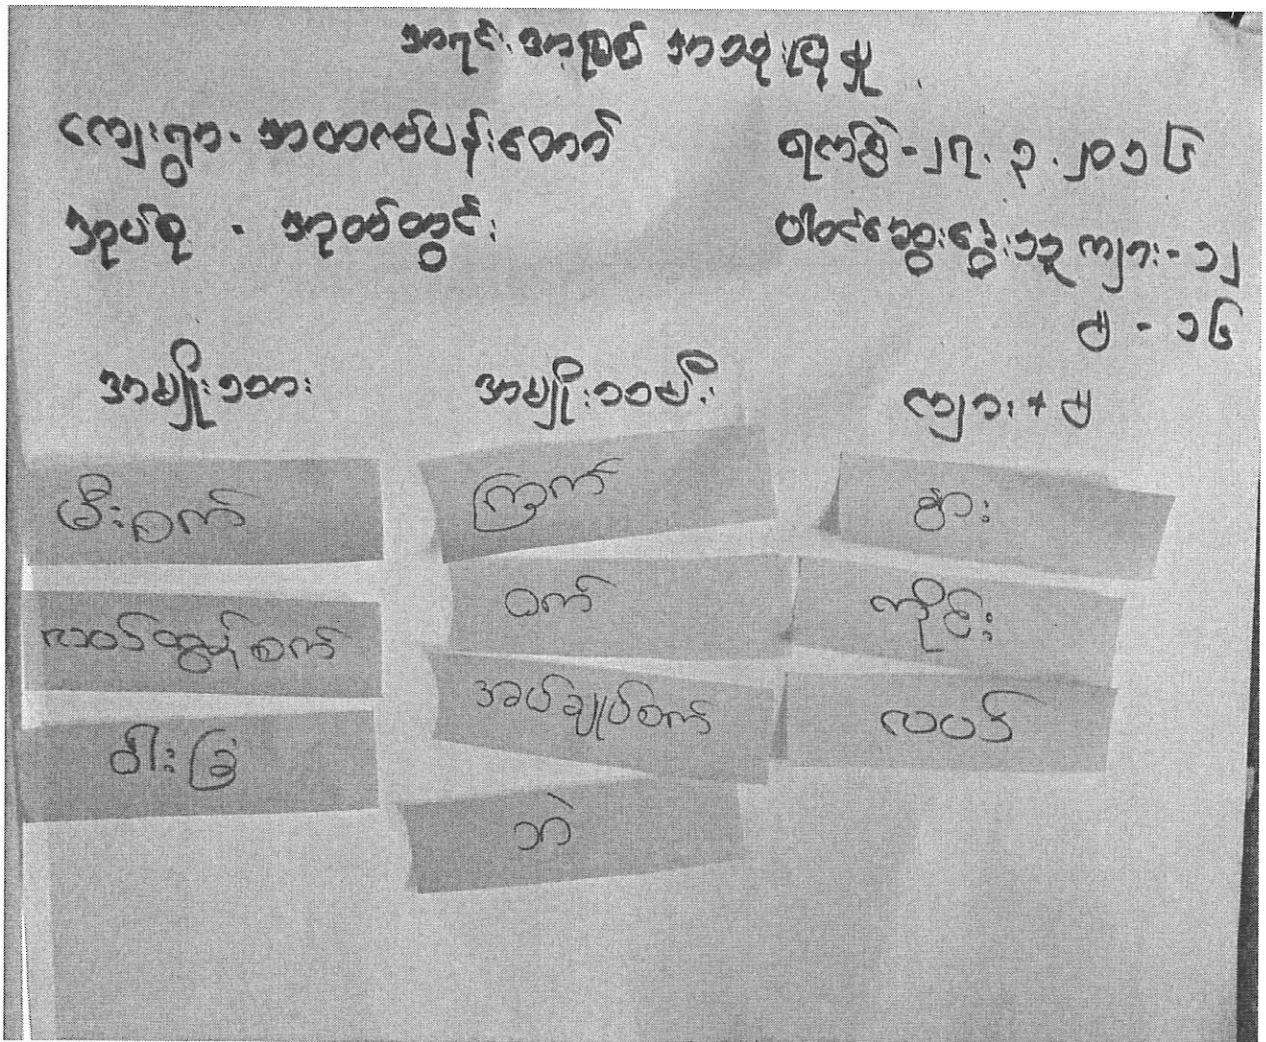 အရင်းအမြစ် အသုံးပြုမှု
ကျေးရွာ - အထက်ပန်းတောင်
ရက်စွဲ - ၂၇. ၃. ၂၀၁၆
အုပ်စု - အုတ်တွင်း
ပါဝင်ဆွေးနွေးသူ ကျား - ၁၂
မ - ၁၆
အမျိုးသား
အမျိုးသမီး
ကျား + မ
မီးစက်
ကြက်
နွား
လယ်ထွန်စက်
ဝက်
ကိုင်း
ဝါးခြံ
အပ်ချုပ်စက်
လယ်
ဘဲ